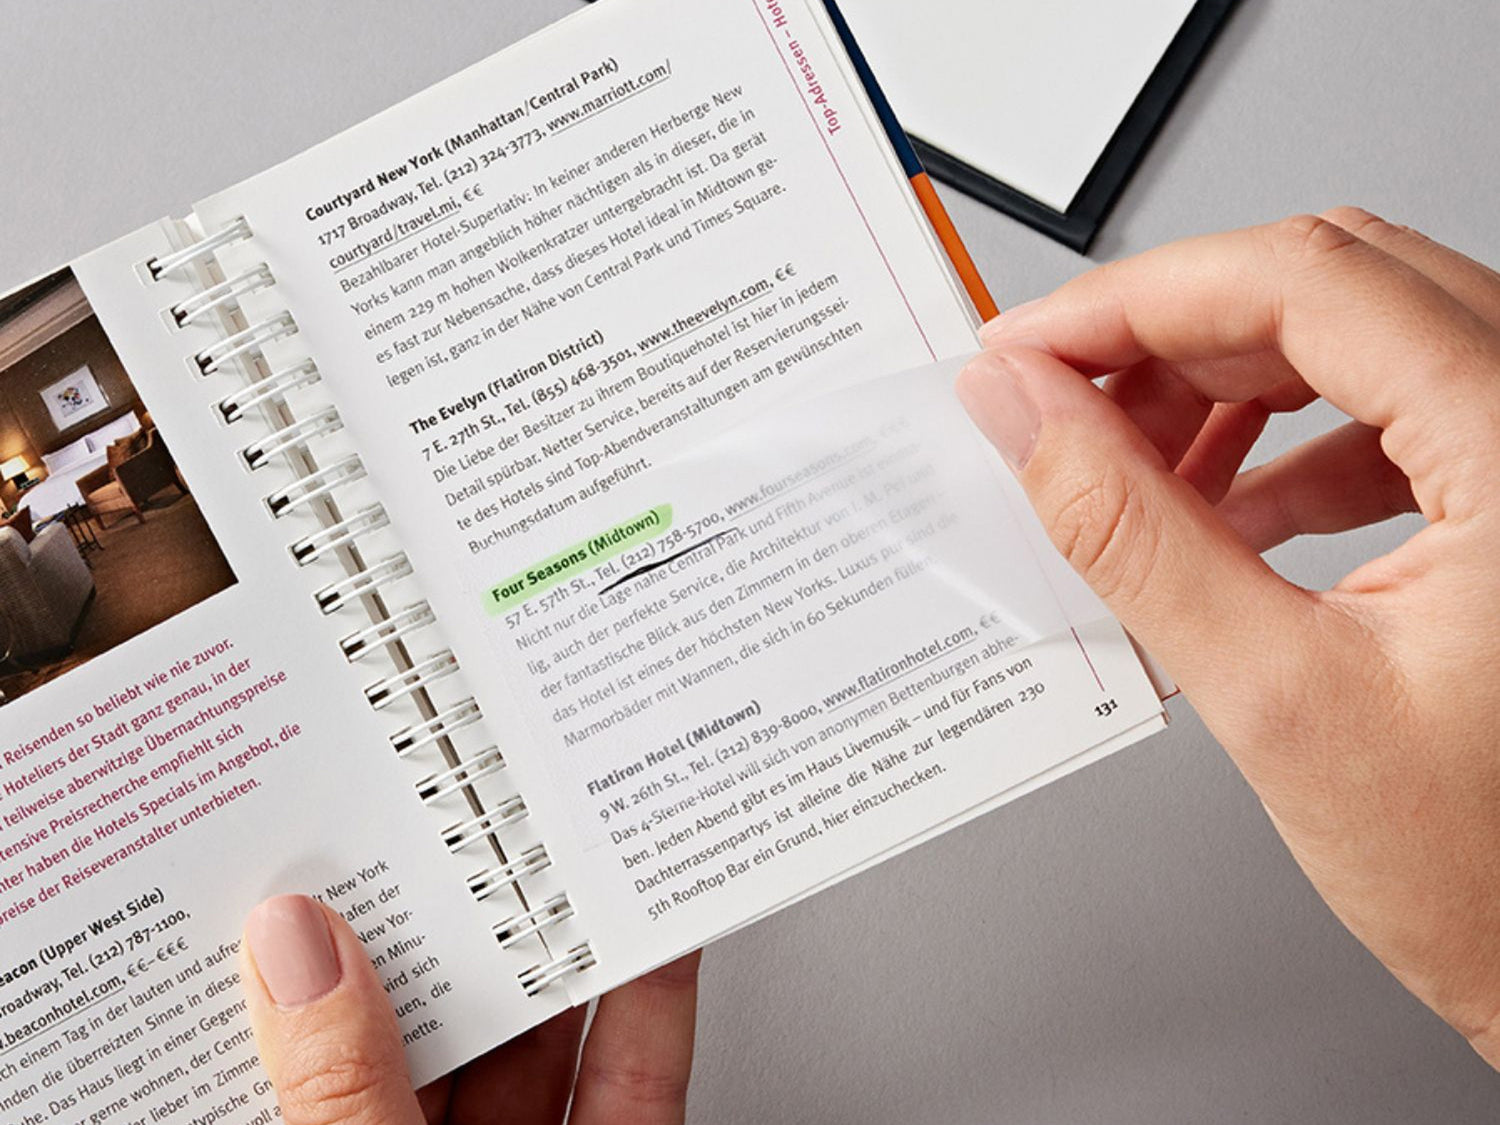 Reisenden so beliebt wie nie zuvor.
Hoteliers der Stadt ganz genau, in der
teilweise aberwitzige Übernachtungspreise
Preisrecherche empfiehlt sich
haben die Hotels Specials im Angebot, die
der Reiseveranstalter unterbieten.
(Upper West Side)
Tel. (212) 787-1100,
.beaconhotel.com, €€–€€€
einem Tag in der lauten und
die überreizten Sinne in
Das Haus liegt in einer
gerne wohnen, der
lieber im
New York
der
die
Courtyard New York (Manhattan/Central Park)
1717 Broadway, Tel. (212) 324-3773, www.marriott.com/
courtyard/travel.mi, €€
Bezahlbarer Hotel-Superlativ: In keiner anderen Herberge New
Yorks kann man angeblich höher nächtigen als in dieser, die in
einem 229 m hohen Wolkenkratzer untergebracht ist. Da gerät
es fast zur Nebensache, dass dieses Hotel ideal in Midtown ge-
legen ist, ganz in der Nähe von Central Park und Times Square.
The Evelyn (Flatiron District)
7 E. 27th St., Tel. (855) 468-3501, www.theevelyn.com, €€
Die Liebe der Besitzer zu ihrem Boutiquehotel ist hier in jedem
Detail spürbar. Netter Service, bereits auf der Reservierungssei-
te des Hotels sind Top-Abendveranstaltungen am gewünschten
Buchungsdatum aufgeführt.
Four Seasons (Midtown)
57 E. 57th St., Tel. (212) 758-5700, www.fourseasons.com,
Nicht nur die Lage nahe Central Park und Fifth Avenue ist einma-
lig, auch der perfekte Service, die Architektur von I. M. Pei und
der fantastische Blick aus den Zimmern in den oberen Etagen –
das Hotel ist eines der höchsten New Yorks. Luxus pur sind die
Marmorbäder mit Wannen, die sich in 60 Sekunden füllen.
Flatiron Hotel (Midtown)
9 W. 26th St., Tel. (212) 839-8000, www.flatironhotel.com, €€
Das 4-Sterne-Hotel will sich von anonymen Bettenburgen abhe-
ben. Jeden Abend gibt es im Haus Livemusik – und für Fans von
Dachterrassenpartys ist alleine die Nähe zur legendären 230
5th Rooftop Bar ein Grund, hier einzuchecken.
Top-Adressen –
131